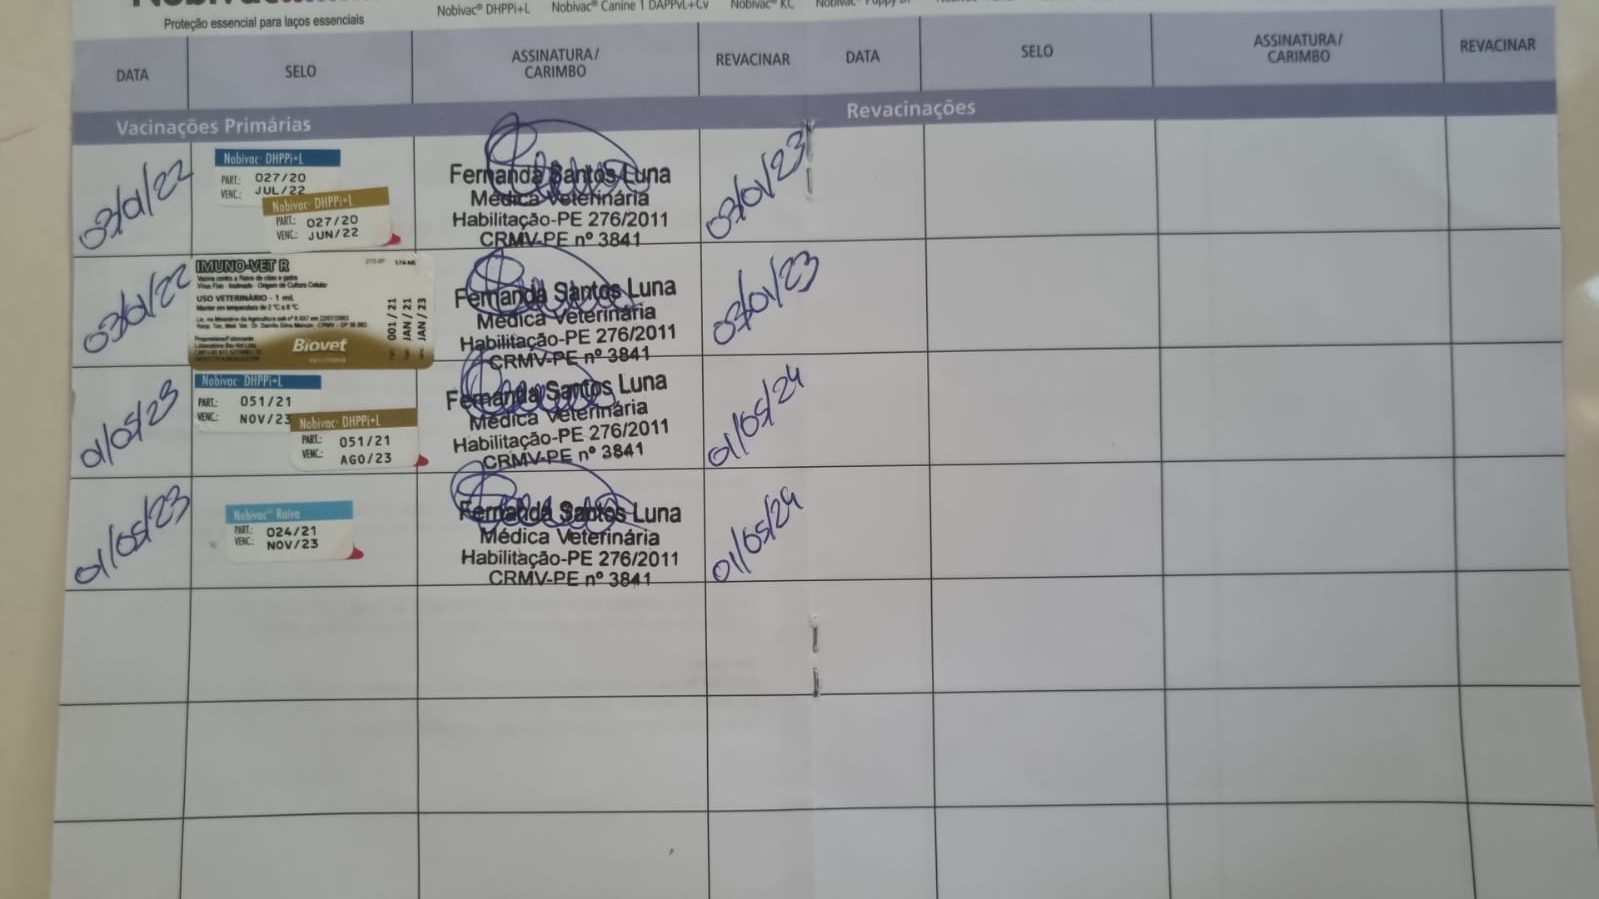 Proteção essencial para laços essenciais
Nobivac® DHPPi+L Nobivac® Canine 1 DAPPvL+Cv Nobivac® KC
DATA SELO ASSINATURA/ CARIMBO REVACINAR DATA SELO ASSINATURA/ CARIMBO REVACINAR
Vacinações Primárias
Revacinações
03/01/22
Nobivac DHPPi+L
PART.: 027/20
VENC.: JUL/22
Nobivac DHPPi+L
PART.: 027/20
VENC.: JUN/22
Fernanda Santos Luna
Médica Veterinária
Habilitação-PE 276/2011
CRMV-PE nº 3841
03/01/23
03/01/22
IMUNO-VET R
Vacina contra a Raiva de cães e gatos
USO VETERINÁRIO - 1 mL
Biovet
001 / 21
JAN / 21
JAN / 23
Fernanda Santos Luna
Médica Veterinária
Habilitação-PE 276/2011
CRMV-PE nº 3841
03/01/23
01/05/23
Nobivac DHPPi+L
PART.: 051/21
VENC.: NOV/23
Nobivac DHPPi+L
PART.: 051/21
VENC.: AGO/23
Fernanda Santos Luna
Médica Veterinária
Habilitação-PE 276/2011
CRMV-PE nº 3841
01/05/24
01/05/23
Nobivac® Raiva
PART.: 024/21
VENC.: NOV/23
Fernanda Santos Luna
Médica Veterinária
Habilitação-PE 276/2011
CRMV-PE nº 3841
01/05/24